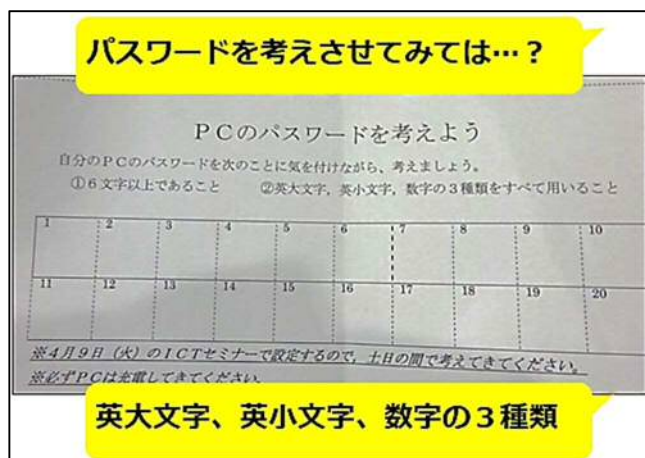 パスワードを考えさせてみては…？
ＰＣのパスワードを考えよう
自分のＰＣのパスワードを次のことに気を付けながら、考えましょう。
①６文字以上であること　　②英大文字，英小文字，数字の３種類をすべて用いること
1 2 3 4 5 6 7 8 9 10
11 12 13 14 15 16 17 18 19 20
※４月９日（火）のＩＣＴセミナーで設定するので，土日の間で考えてきてください。
※必ずＰＣは充電してきてください。
英大文字、英小文字、数字の３種類